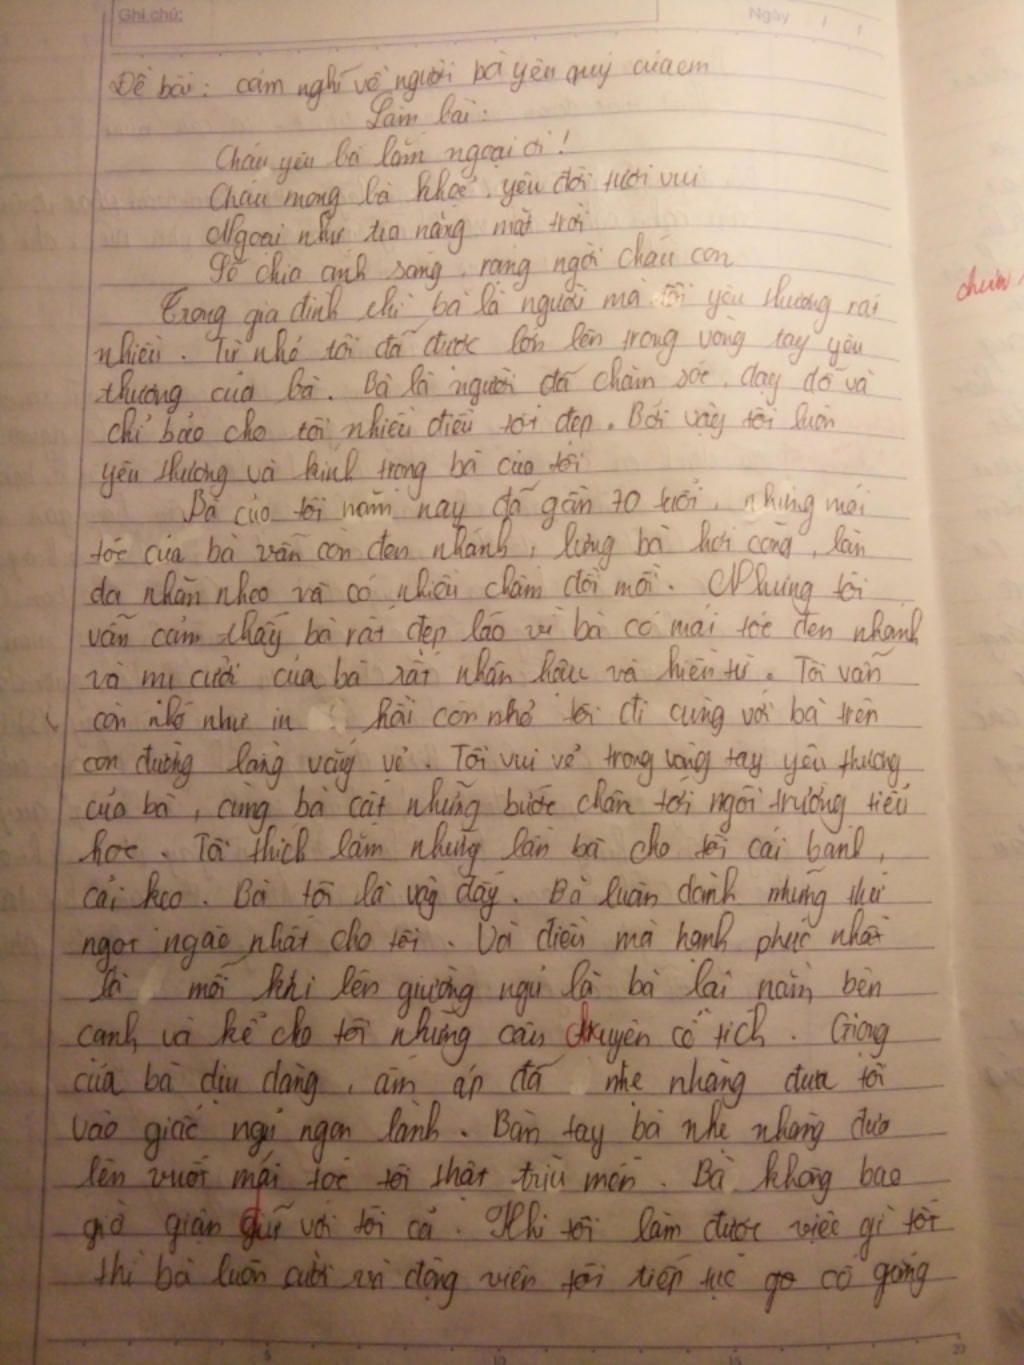 Ghi chú:
Ngày / /
Đề bài: cảm nghĩ về người bà yêu quý của em
Làm bài:
Cháu yêu bà lắm ngoại ơi!
Cháu mong bà khoẻ, yêu đời tươi vui
Ngoại như tia nắng mặt trời
Sẽ chia ánh sáng, rạng ngời cháu con
Trong gia đình thì bà là người mà tôi yêu thương rất
nhiều. Từ nhỏ tôi đã được lớn lên trong vòng tay yêu
thương của bà. Bà là người đã chăm sóc, dạy dỗ và
chỉ bảo cho tôi nhiều điều tốt đẹp. Bởi vậy tôi luôn
yêu thương và kính trọng bà của tôi
Bà của tôi năm nay đã gần 70 tuổi, nhưng mái
tóc của bà vẫn còn đen nhánh, lưng bà hơi còng, làn
da nhăn nheo và có nhiều chấm đồi mồi. Nhưng tôi
vẫn cảm thấy bà rất đẹp lão vì bà có mái tóc đen nhánh
và nụ cười của bà rất nhân hậu và hiền từ. Tôi vẫn
còn nhớ như in hồi còn nhỏ tôi đi cùng với bà trên
con đường làng vắng vẻ. Tôi vui vẻ trong vòng tay yêu thương
của bà, cùng bà cất những bước chân tới ngôi trường tiểu
học. Tôi thích lắm những lần bà cho tôi cái bánh,
cái kẹo. Bà tôi là vậy đấy. Bà luôn dành những thứ
ngọt ngào nhất cho tôi. Và điều mà hạnh phúc nhất
là mỗi khi lên giường ngủ là bà lại nằm bên
cạnh và kể cho tôi những câu chuyện cổ tích. Giọng
của bà dịu dàng, ấm áp đã nhẹ nhàng đưa tôi
vào giấc ngủ ngon lành. Bàn tay bà nhẹ nhàng đưa
lên vuốt mái tóc tôi thật trìu mến. Bà không bao
giờ giận giữ với tôi cả. Khi tôi làm được việc gì tốt
thì bà luôn cười và động viên tôi tiếp tục cố gắng
5 10 15 20